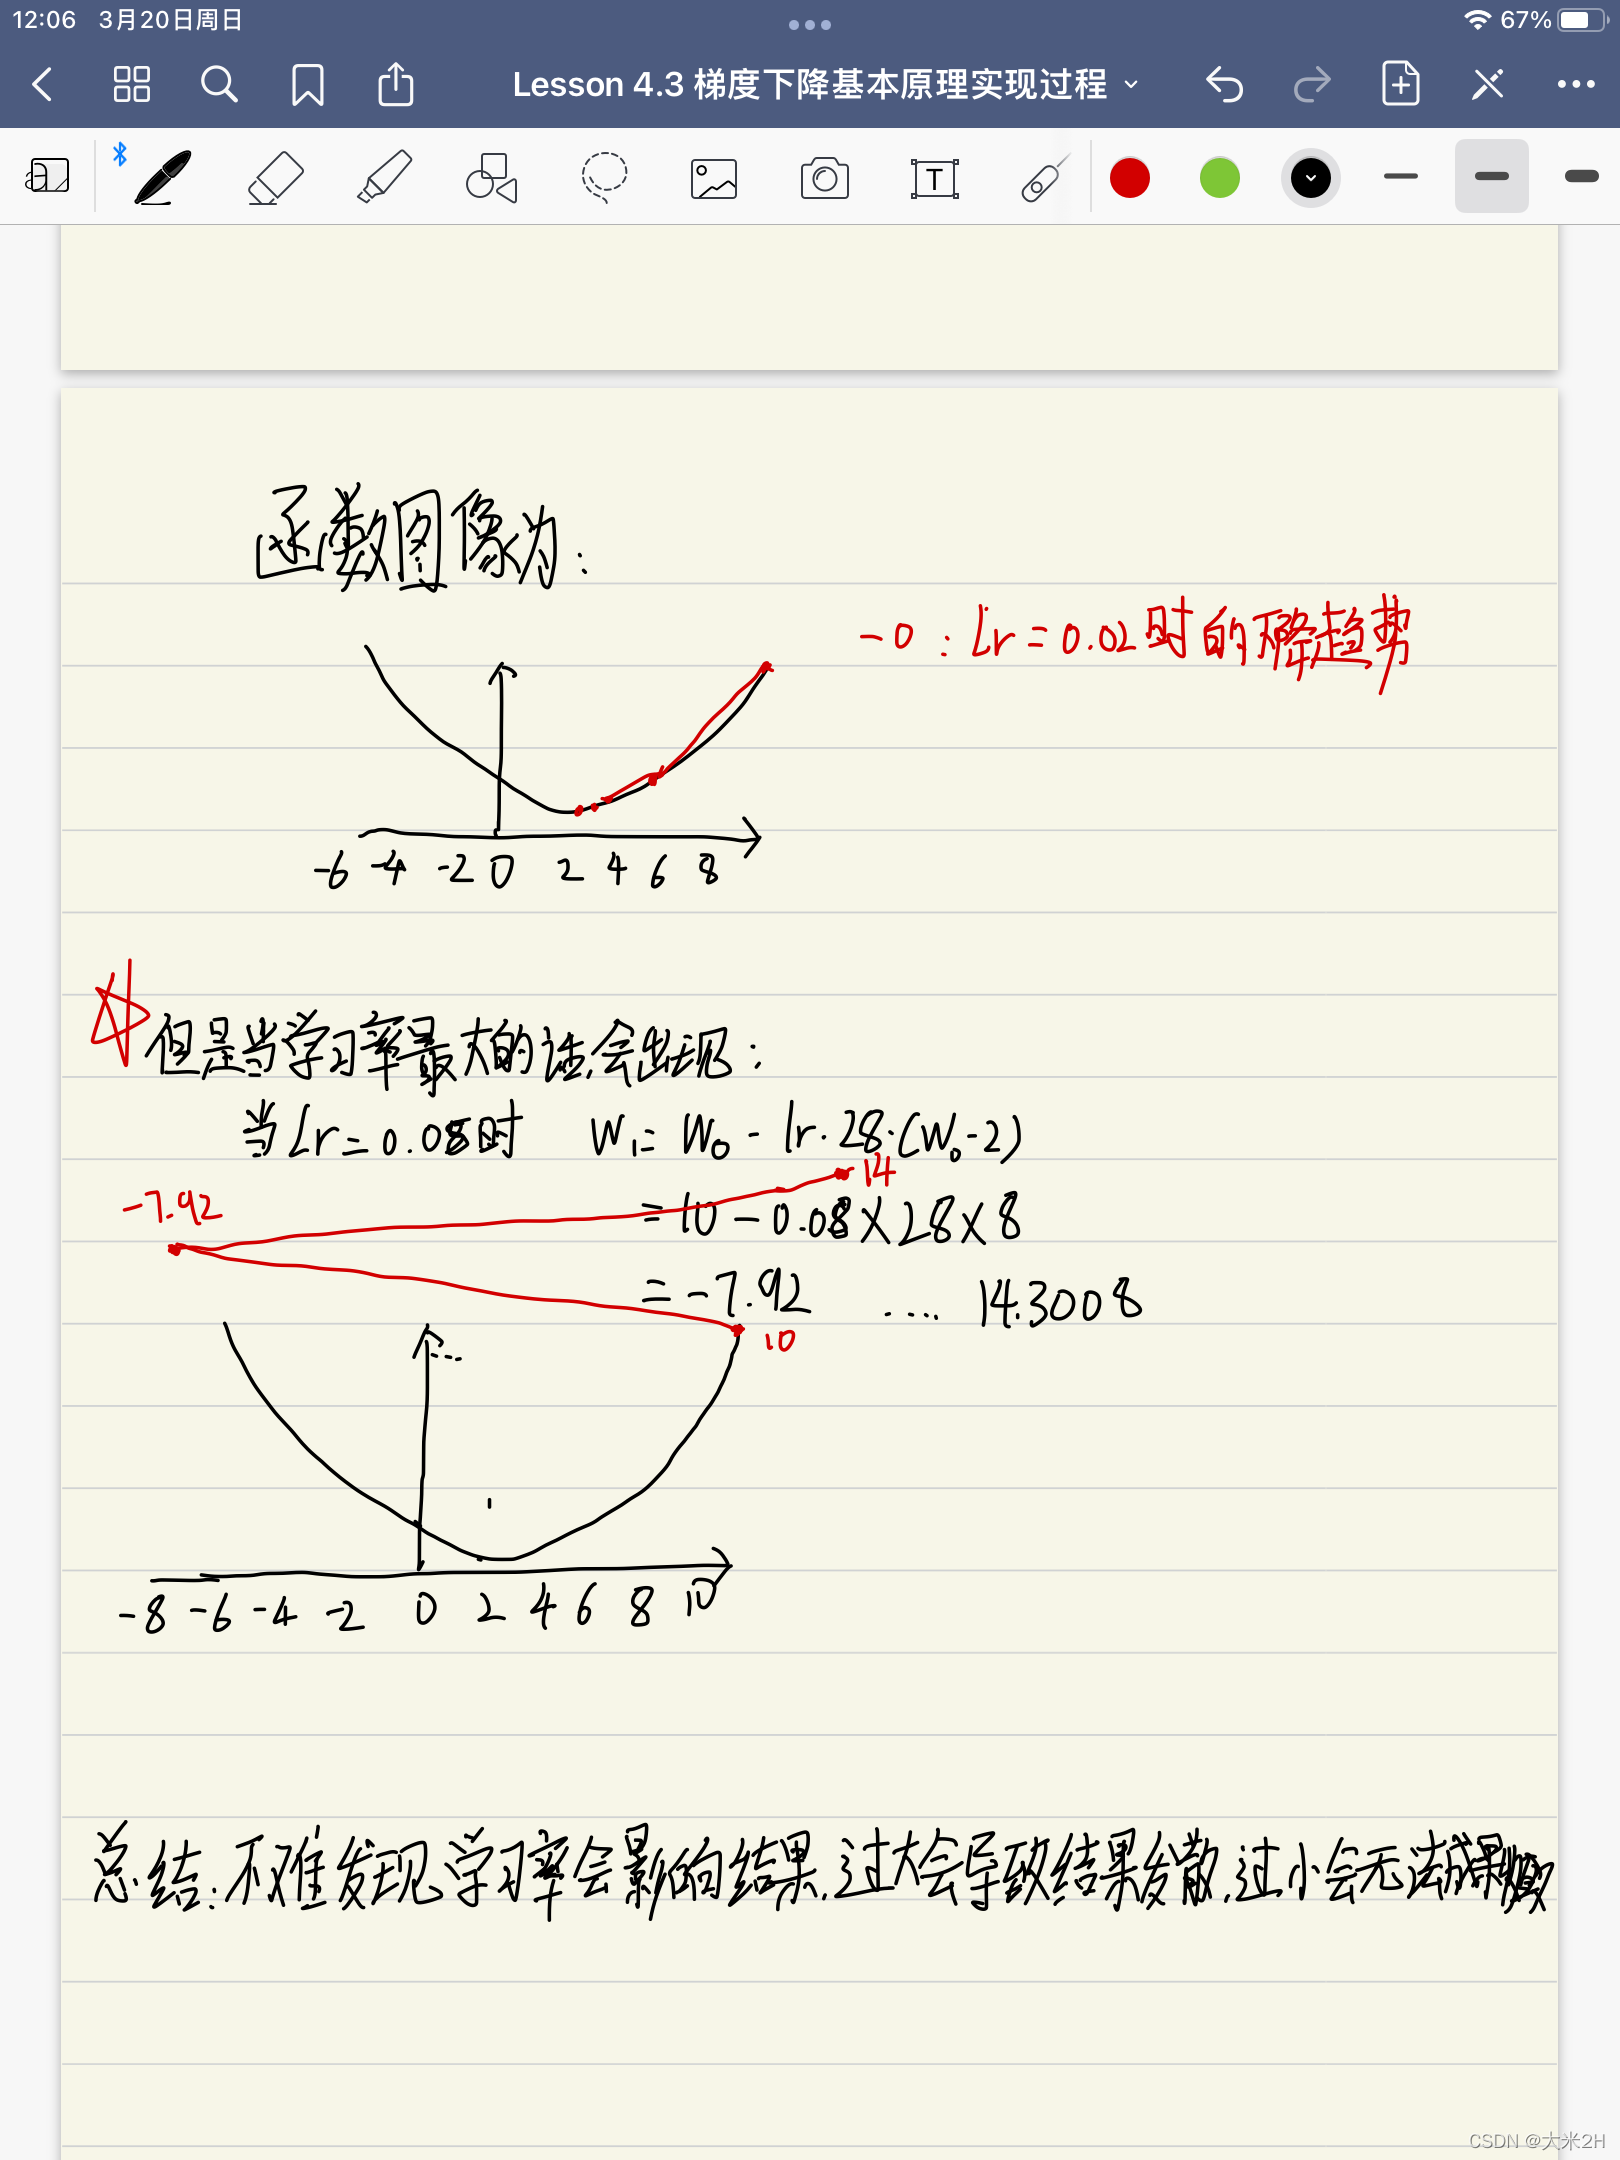 12:06 3月20日周日 67%
Lesson 4.3 梯度下降基本原理实现过程
T
函数图像为:
-0 : Lr = 0.02时的下降趋势
-6 -4 -2 0 2 4 6 8
但是当学习率最大的话,会出现:
当Lr=0.08时 W₁= W₀ - lr·28·(W₀-2)
14
-7.92
= 10 - 0.08×28×8
= -7.92 .... 14.3008
10
-8 -6 -4 -2 0 2 4 6 8 10
总结:不难发现学习率会影响结果,过大会导致结果发散,过小会无法
CSDN @大米2H